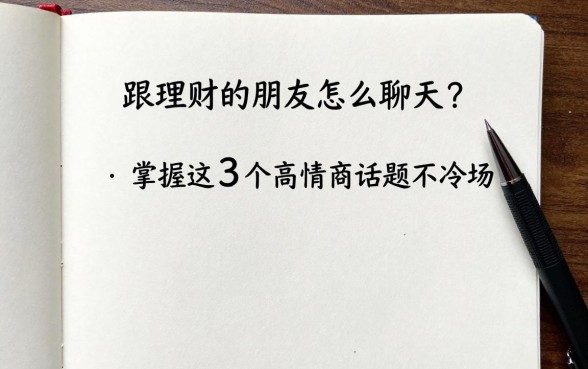 跟理财的朋友怎么聊天？
· 掌握这3个高情商话题不冷场